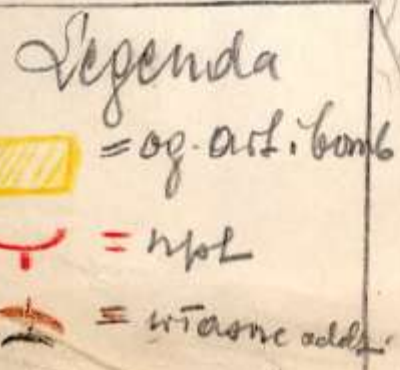 Legenda
= og. art. i bomb
= npl
= własne oddz.